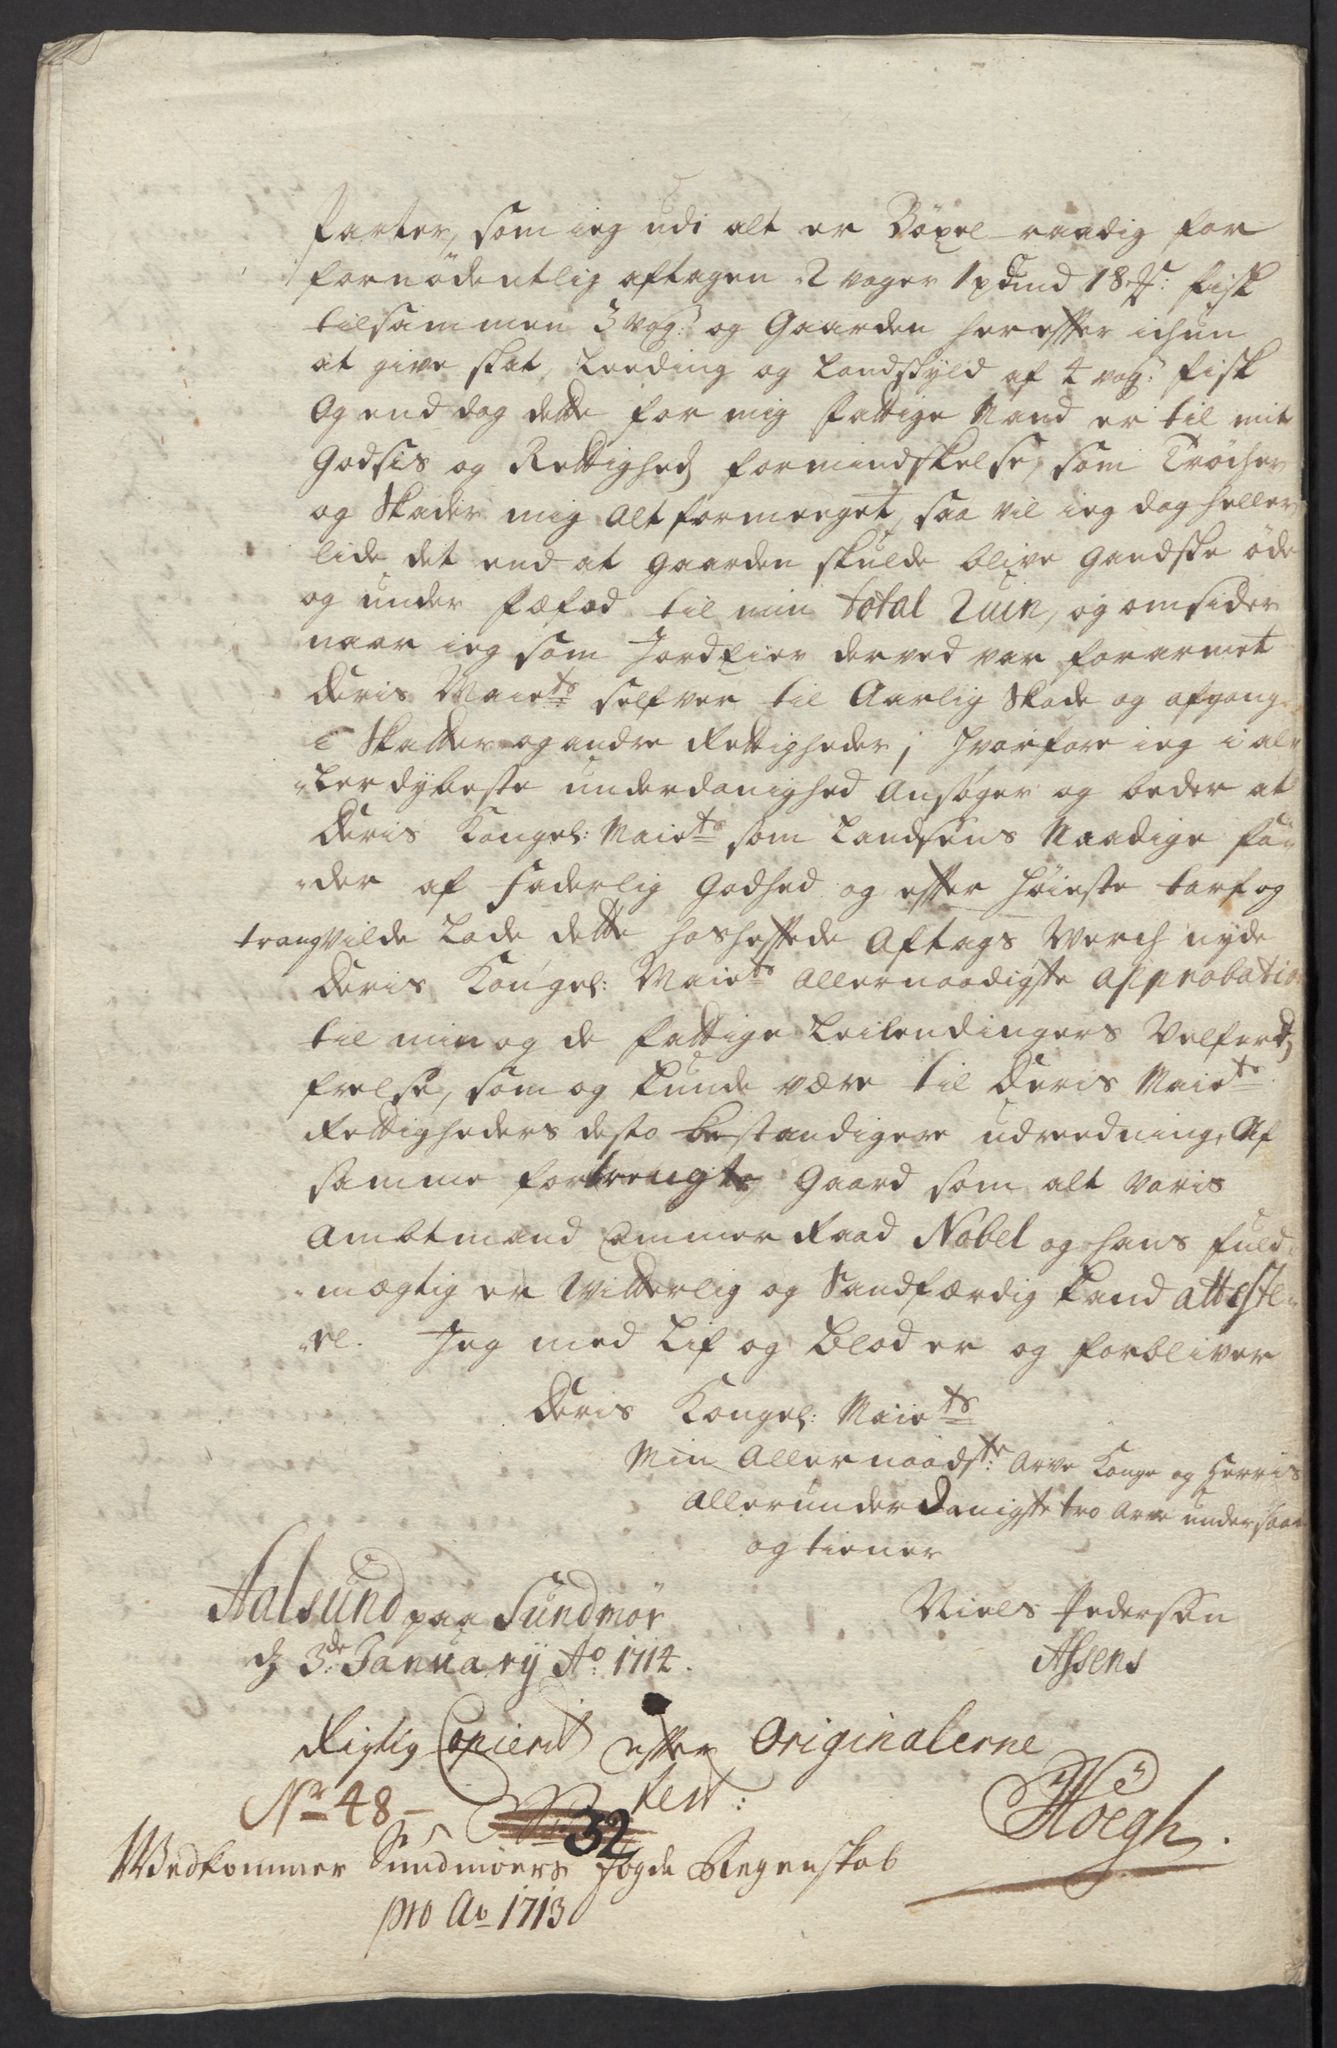 Parter, som ieg udi alt er Böxel raadig for
fornödentlig aftagen 2 voger 1 pdund 18 fisk
tilsammen 3 vog: og Gaarden hereffter ichun
at give skat, Leeding og Landskyld af 4 vog: fisk
Og end dog dette for mig fattige Mand er til mit
Godsis og Rettigheds formindskelse, som Tröcher
og Skader mig alt formeeget, saa vil ieg dog heller
lide det end at gaarden skulde blive gandske öde
og under fæfod til min total Ruin, og omsider
naar ieg som Jordeier derved var forarmet
Deris Maiets self ver til Aarlig Skade og afgang
i Skatter og andre Rettigheder; Hvorfore ieg i al-
-lerdybeste underdanighed Ansöger og beder at
Deris Kongel: Maiets som Landsens Naadige fa-
-der af faderlig Godhed og effter höieste tarf og
trang vilde Lade dette hoshefftede Aftags Werch nyde
Deris Kongel: Maiets allernaadigste approbatio
til min og de fattige Leilendingers Velferds
frelse, som og kunde være til Deris Maiets
Rettigheders desto bestandigere udreedning, Af
samme fortrengte Gaard som alt Voris
Ambtmand Cammer Raad Nobel og hans fuld-
-mægtig er Witterlig og Sandfærdig kand atteste-
-re. Jeg med Lif og blod er og forbliver
Deris Kongel: Maiets
Min Allernaadste: Arve Konge og Herris
allerunderdanigste tro Arve undersaat
og tiener
Aalsund paa Sundmör Niels Pedersen
d 3de January Ao 1714. Assens
Rigtig Copieret effter Originalerne
Test:
No 48 - 32 Höegh.
Wedkommer Sundmöers fogde Regenskab
pro Ao 1713